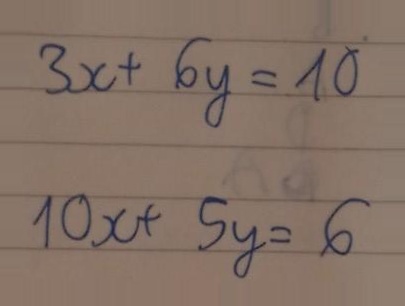 3x+ 6y = 10
10x+ 5y= 6